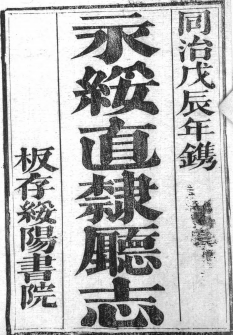 同治戊辰年鐫
永綏直隸廳志
板存綏陽書院